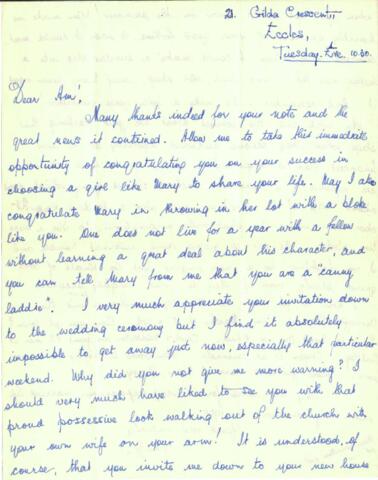 21. Gilda Crescent,
Eccles,
Tuesday. Eve. 10.30.
Dear Am!,
Many thanks indeed for your note and the
great news it contained. Allow me to take this immediate
opportunity of congratulating you on your success in
choosing a girl like Mary to share your life. May I also
congratulate Mary in throwing in her lot with a bloke
like you. One does not live for a year with a fellow
without learning a great deal about his character, and
you can tell Mary from me that you are a "canny
laddie". I very much appreciate your invitation down
to the wedding ceremony but I find it absolutely
impossible to get away just now, especially that particular
weekend. Why did you not give me more warning? I
should very much have liked to see you with that
proud possessive look walking out of the church with
your own wife on your arm! It is understood, of
course, that you invite me down to your new house